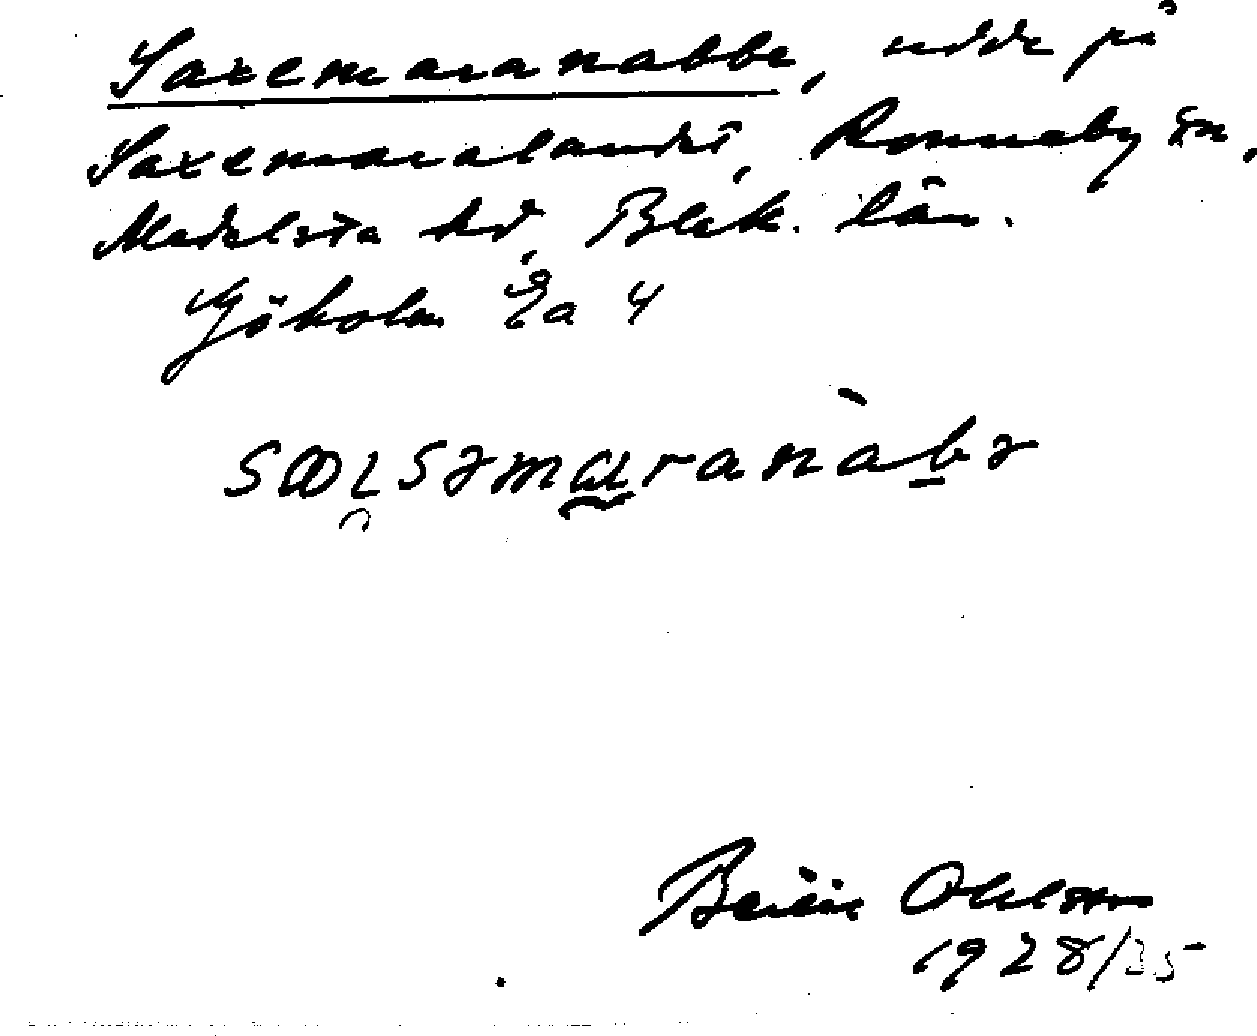 Saxemaranabbe, udde på
Saxemaralandet, Ronneby sn,
Medelsta hd, Blek. län.
Sjökolm Ea 4
Bertil Ohlsson
1928/35